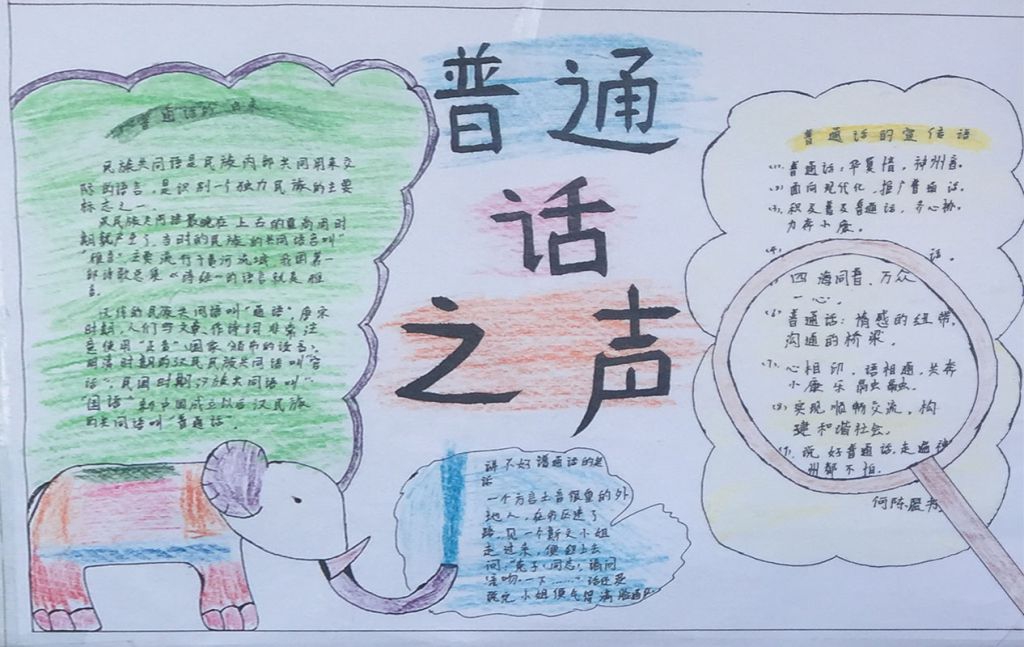 普通
话
之声
普通话的由来
民族共同语是民族内部共同用来交
际的语言，是识别一个独力民族的主要
标志之一。
汉民族共同语最晚在上古的夏商周时
期就产生了，当时的民族的共同语名叫"
"雅言"主要流行于黄河流域，我国第一
部诗歌总集《诗经》的语言就是雅
言。
汉代的民族共同语叫"通语"。唐宋
时期，人们写文章、作诗词非常注
意使用"正音"（国家颁布的读音），
明清时期的汉民族共同语叫"官
话"，民国时期汉族共同语叫"
"国语"新中国成立以后汉民族
的共同语叫普通话。
讲不好谱通话的笑
话
一个方言土音很重的外
地人，在市区迷了
路，见一个斯文小姐
走过来，便赶上去
问："兔子，同志，请问
一下……"话还没
说完小姐便气得满脸通
普通话的宣传话
⑴、普通话，华夏情，神州音。
⑵ 面向现代化，推广普通话。
⑶、积及普及普通话，齐心协
力奔小康。
⑷
话。
四海同音，万众
一心。
⑹ 普通话：情感的纽带，
沟通的桥梁。
⑺、心相印，语相通，共奔
小康乐融融。
⑻ 实现顺畅交流，构
建和谐社会。
⑼、说好普通话，走遍神
州都不怕。